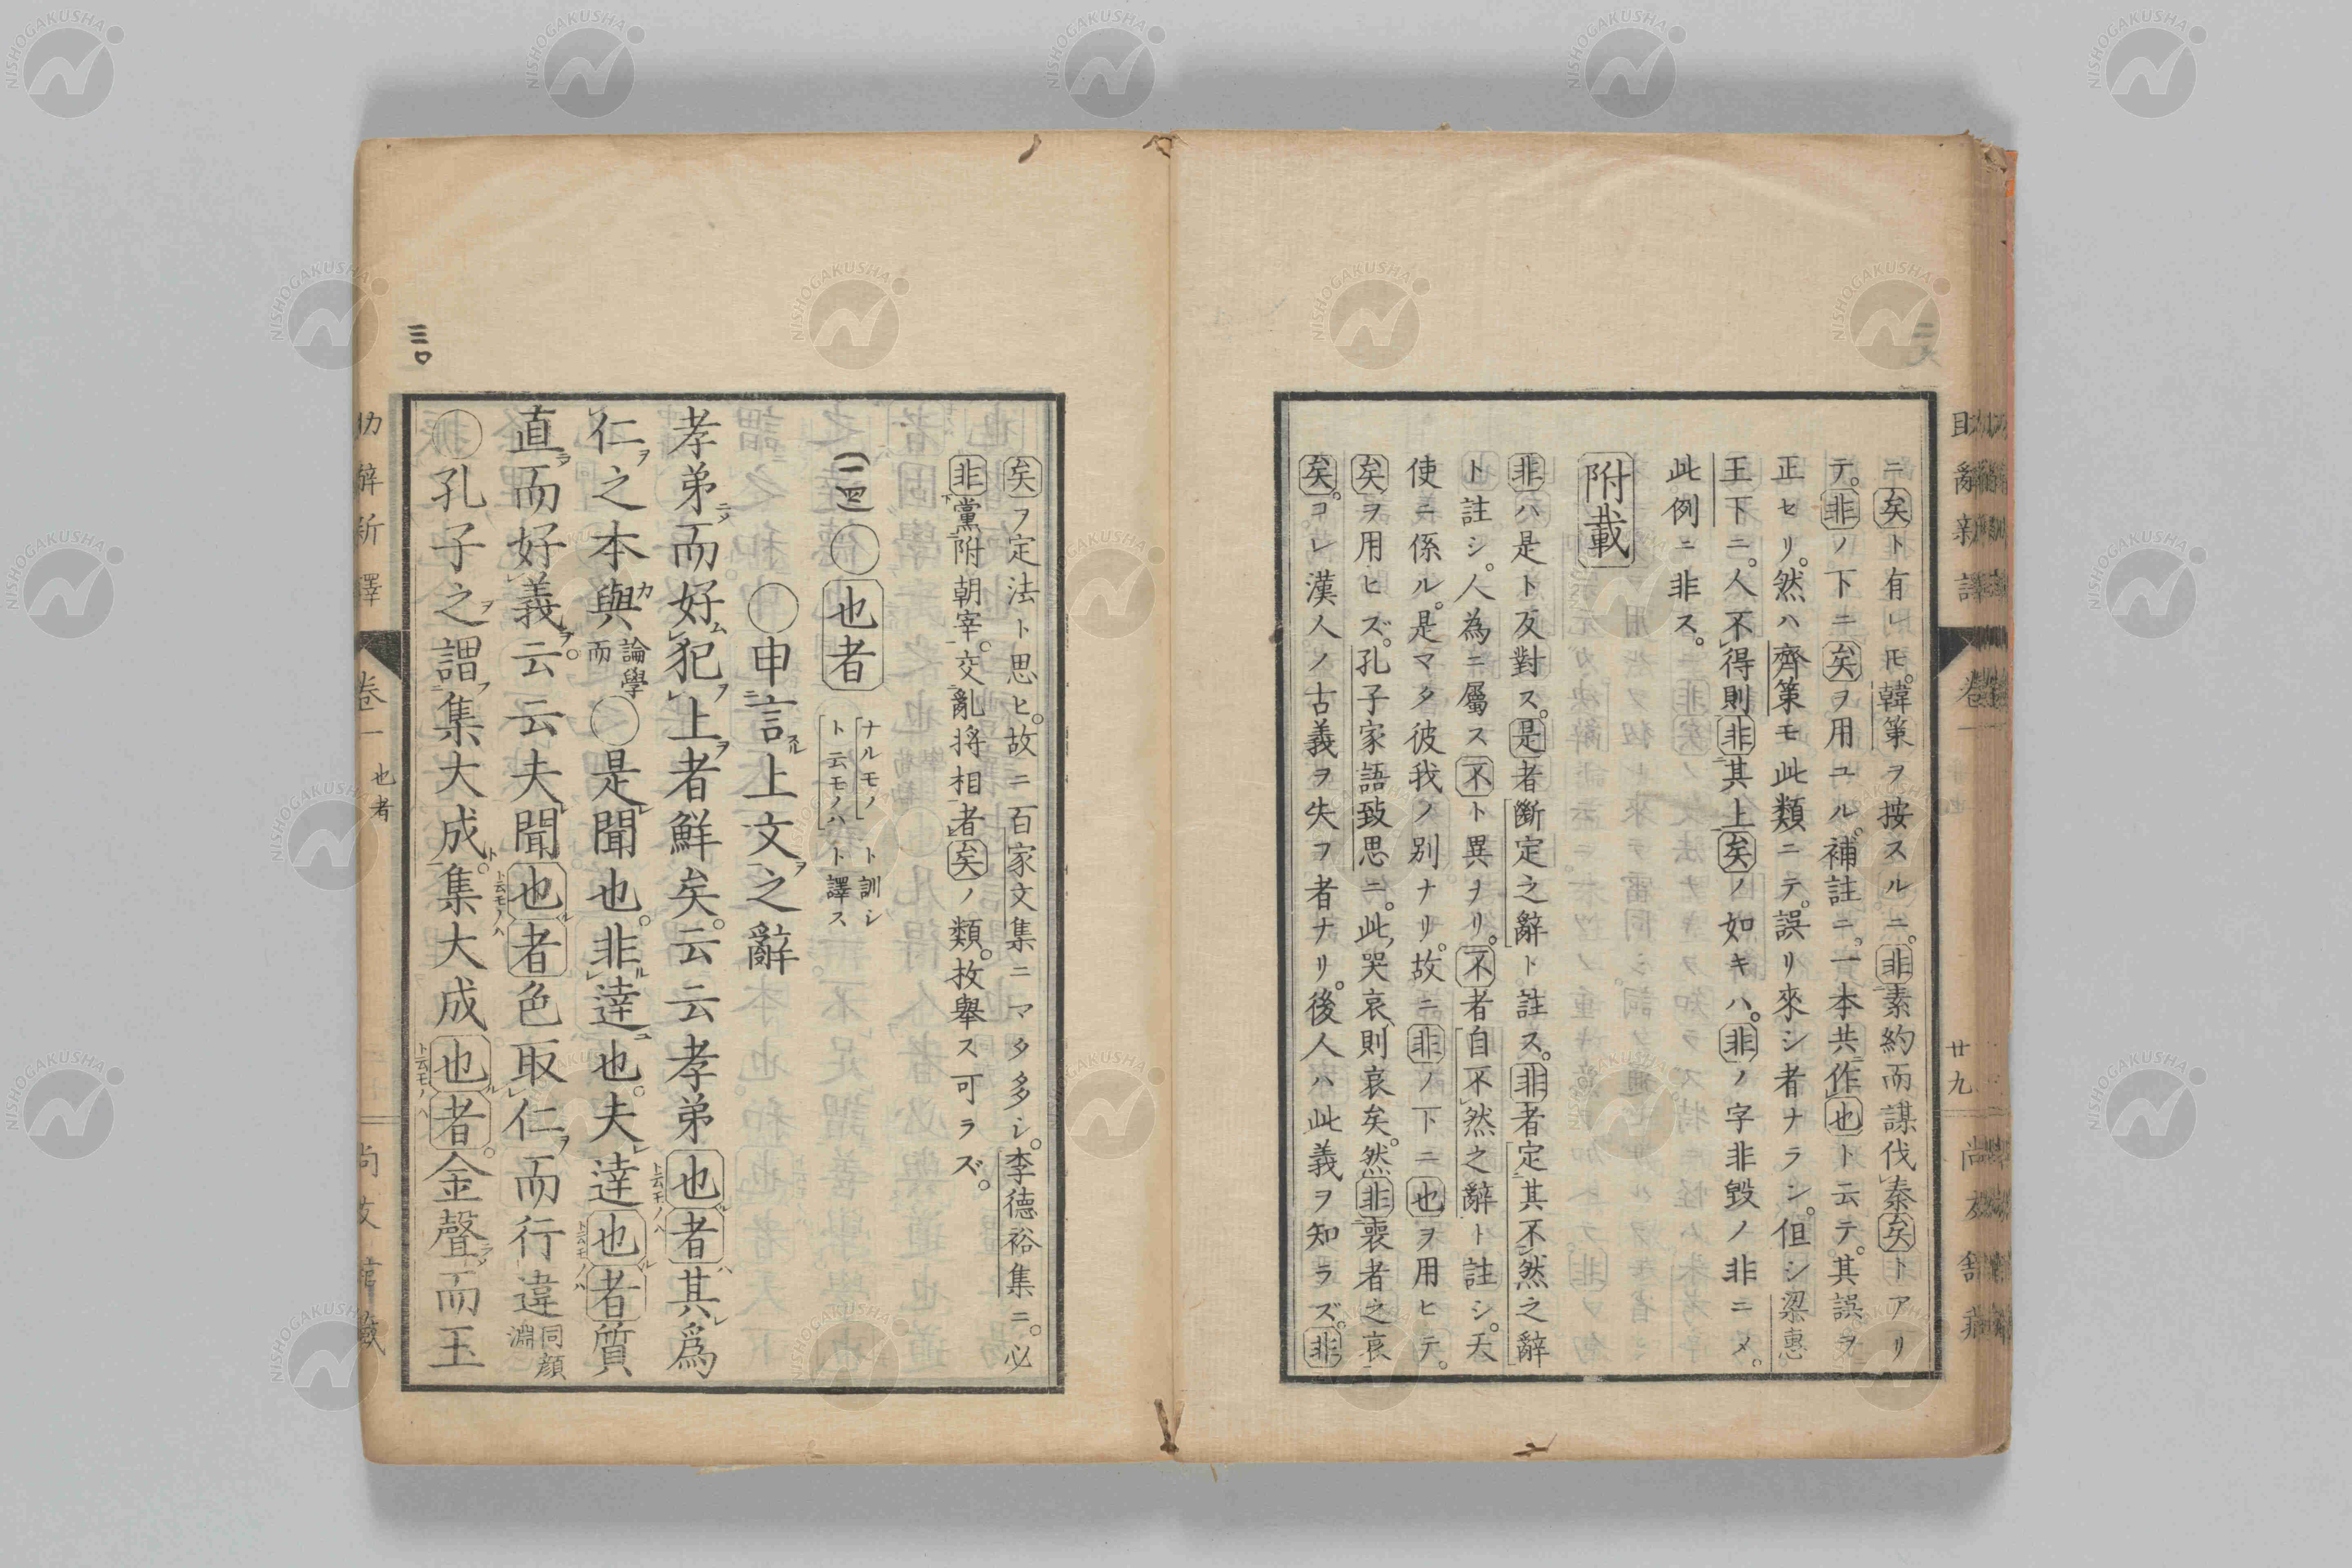 ニ矣ト有レ𪜈。韓策ヲ按スルニ。非素約而謀伐秦矣トアリ
テ。非ノ下ニ矣ヲ用ユル。補註ニ。一本共作也ト云テ。其誤ヲ
正セリ。然ハ齊策モ此類ニテ。誤リ來シ者ナラン。但シ梁惠
王下ニ。人不得則非其上矣ノ如キハ。非ノ字非毀ノ非ニメ。
此例ニ非ス。
附載
非ハ是ト反對ス。是者斷定之辭ト註ス。非者定其不然之辭
ト註シ。人為ニ屬ス不ト異ヲリ。不者自不然之辭ト註シ。天
使ニ係ル。是マタ彼我ノ別ナリ。故ニ非ノ下ニ也ヲ用ヒテ。
矣ヲ用ヒズ。孔子家語致思ニ。此哭哀則哀矣。然非喪者之哀
矣。コレ漢人ノ古義ヲ失フ者ナリ。後人ハ此義ヲ知ラズ。非
廿九
矣ヲ定法ト思ヒ。故ニ百家文集ニマタ多シ。李德裕集ニ。必
非黨附朝宰。交亂将相者矣ノ類。枚舉ス可ラズ。
(一四)〇也者 ナルモノト訓シ ト云モノハト譯ス
〇申言上文之辭
孝弟而好犯上者鮮矣。云云孝弟也者其爲
仁之本與 論學而 〇是聞也。非達也。夫達也者質
直而好義。云云夫聞也者色取仁而行違 同顔淵
〇孔子之謂集大成。集大成也者。金聲而玉
三〇
助辭新譯 卷一 也者
尚友舘藏